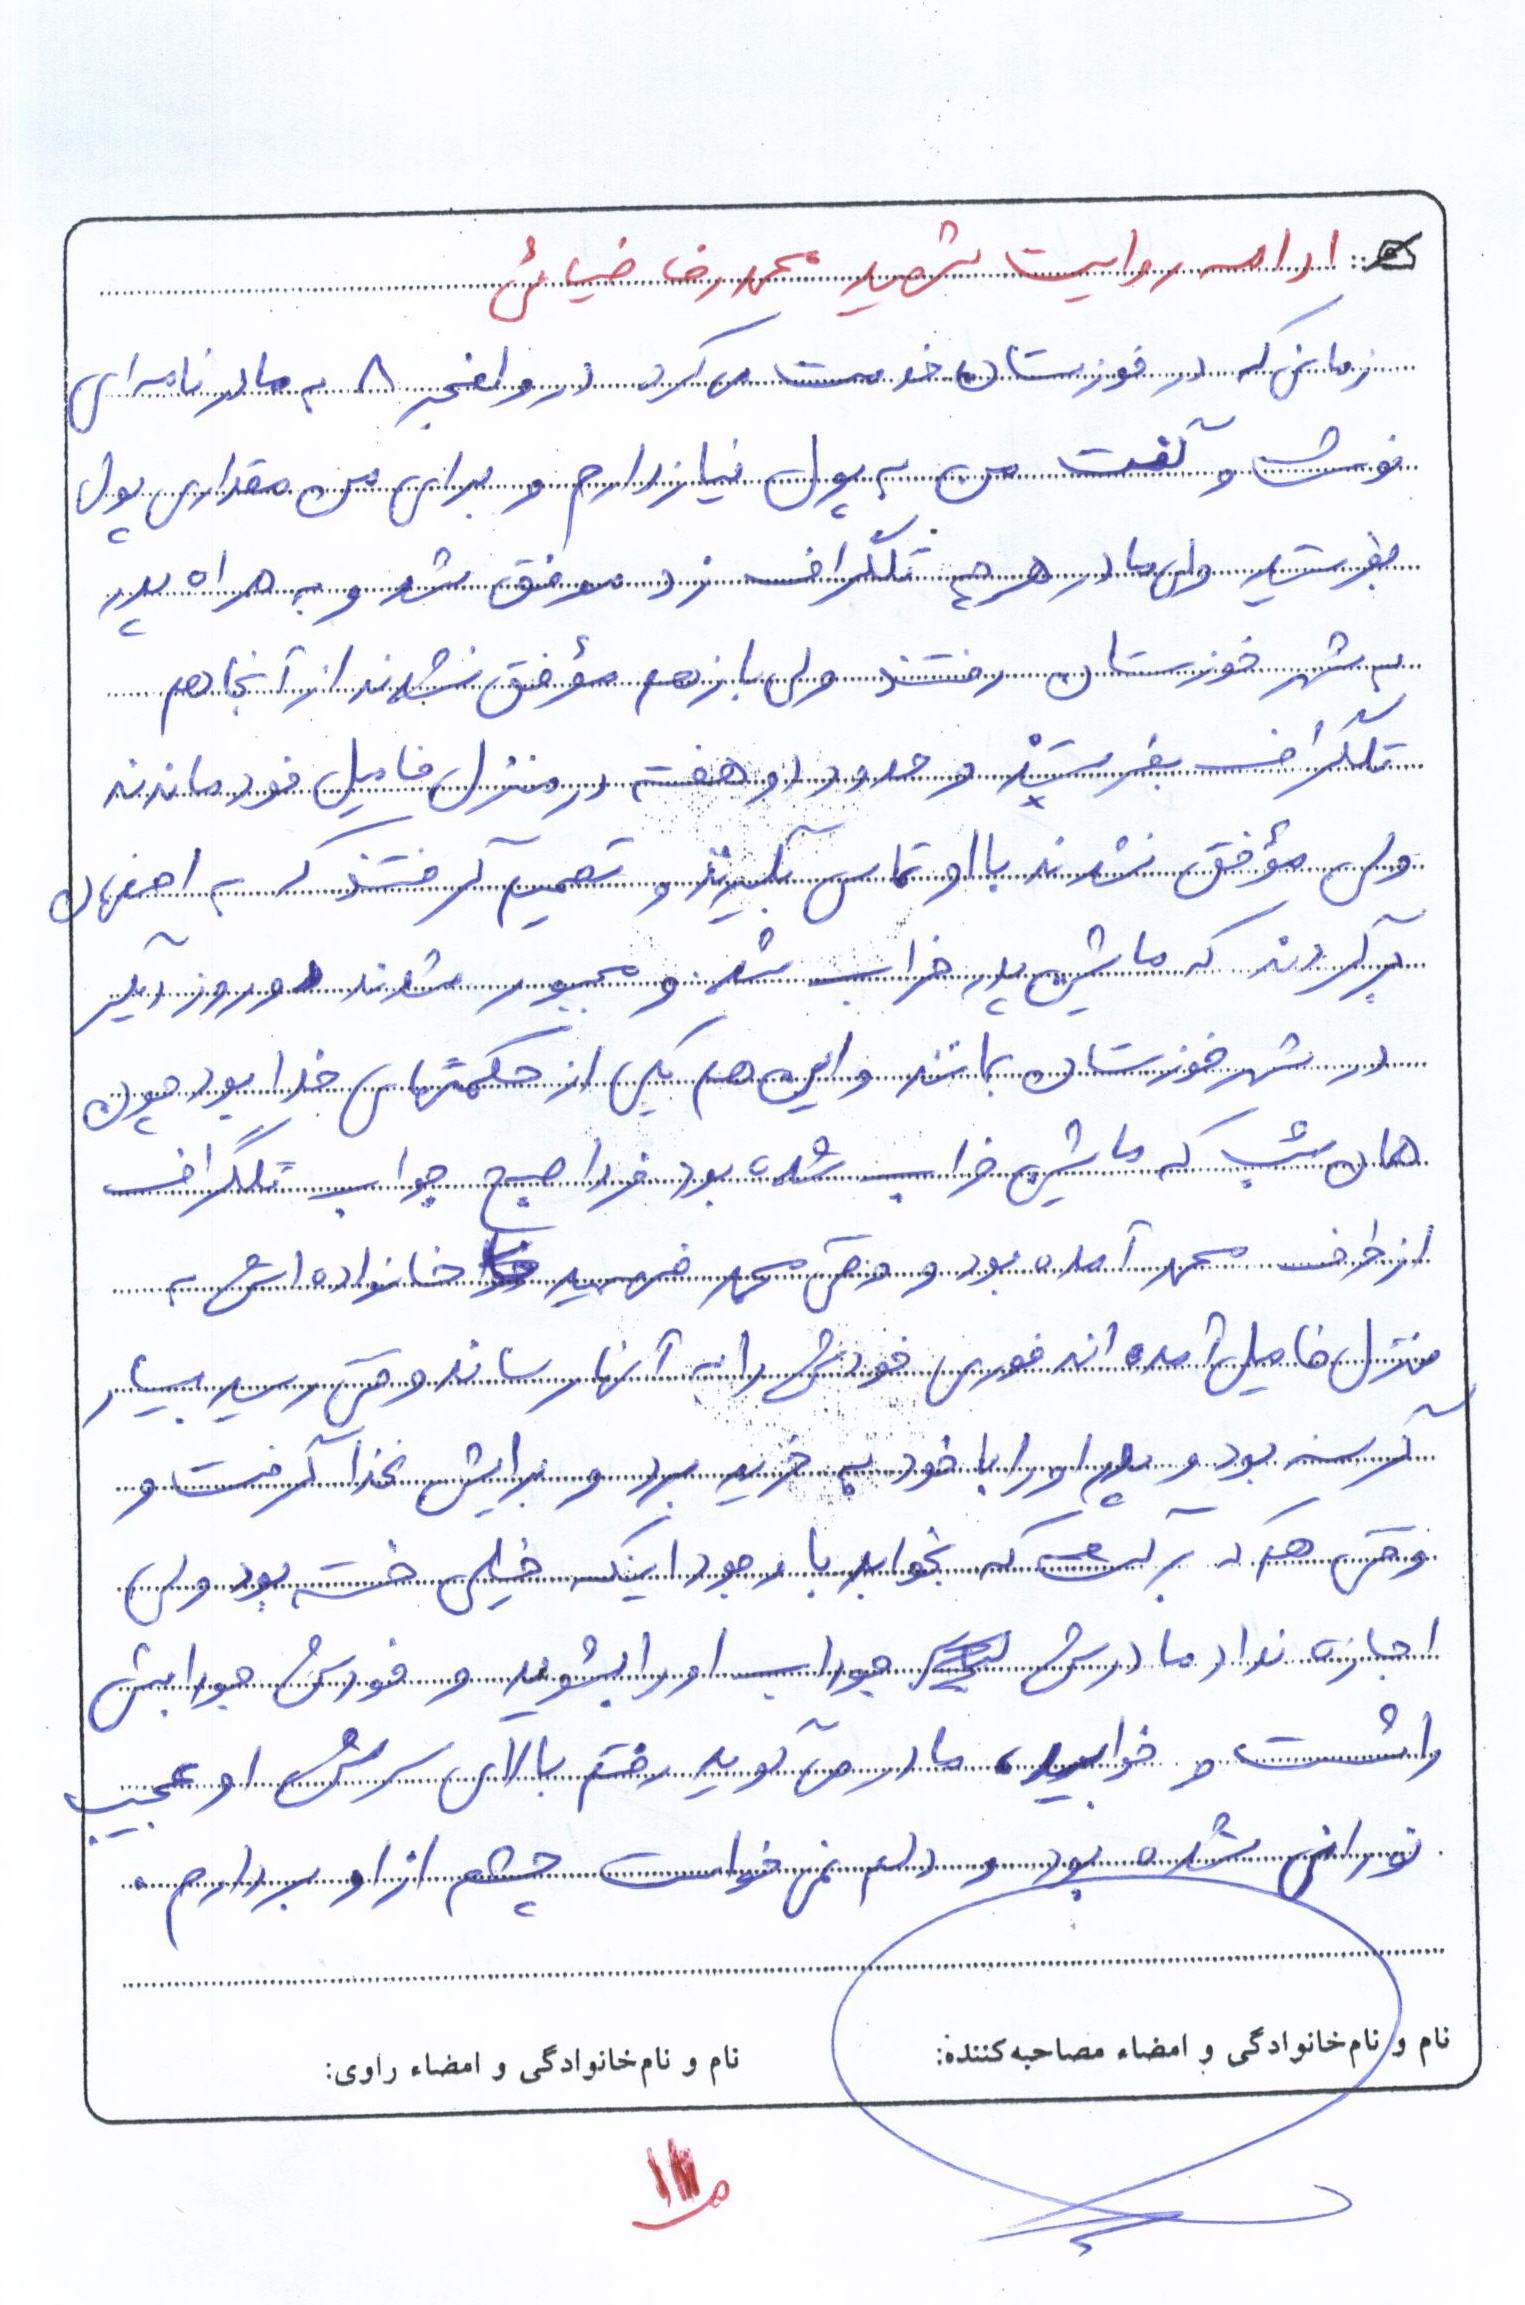 ادامه روایت شهید محمدرضا ضیائی
زمانی که در خوزستان خدمت می کرد در والفجر ۸ به مادر نامه ای
نوشت و گفت من به پول نیاز دارم و برای من مقداری پول
بفرستید ولی مادر هر چه تلگراف زد موفق نشد و به همراه پدر
به شهر خوزستان رفتند ولی باز هم مؤفق نشدند از آنجا هم
تلگراف بفرستند و حدود دو هفته در منزل فامیل خود ماندند
ولی مؤفق نشدند با او تماس بگیرند و تصمیم گرفتند که به اصفهان
برگردند که ماشین پدر خراب شد و مجبور شدند دو روز دیگر
در شهر خوزستان بمانند و این هم یکی از حکمتهای خدا بود چون
همان شب که ماشین خراب شده بود فردا صبح جواب تلگراف
از طرف محمد آمده بود و وقتی محمد فهمید خانواده اش به
منزل فامیل آمده اند فوری خودش را به آنها رساند وقتی رسید بسیار
گرسنه بود و پدر او را با خود به خرید برد و برایش غذا گرفت و
وقتی هم که برگشت که بخوابد با وجود اینکه خیلی خسته بود ولی
اجازه نداد مادرش جوراب او را بشوید و خودش جورابش
را شست و خوابید، مادر می گوید رفتم بالای سرش او عجیب
نورانی شده بود و دلم نمی خواست چشم از او بردارم.
نام و نام‌خانوادگی و امضاء مصاحبه‌کننده:
نام و نام‌خانوادگی و امضاء راوی: